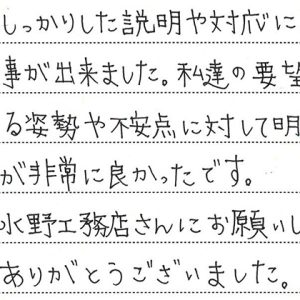 しっかりした説明や対応に
事が出来ました。私達の要望
る姿勢や不安点に対して明
が非常に良かったです。
水野工務店さんにお願いし
ありがとうございました。